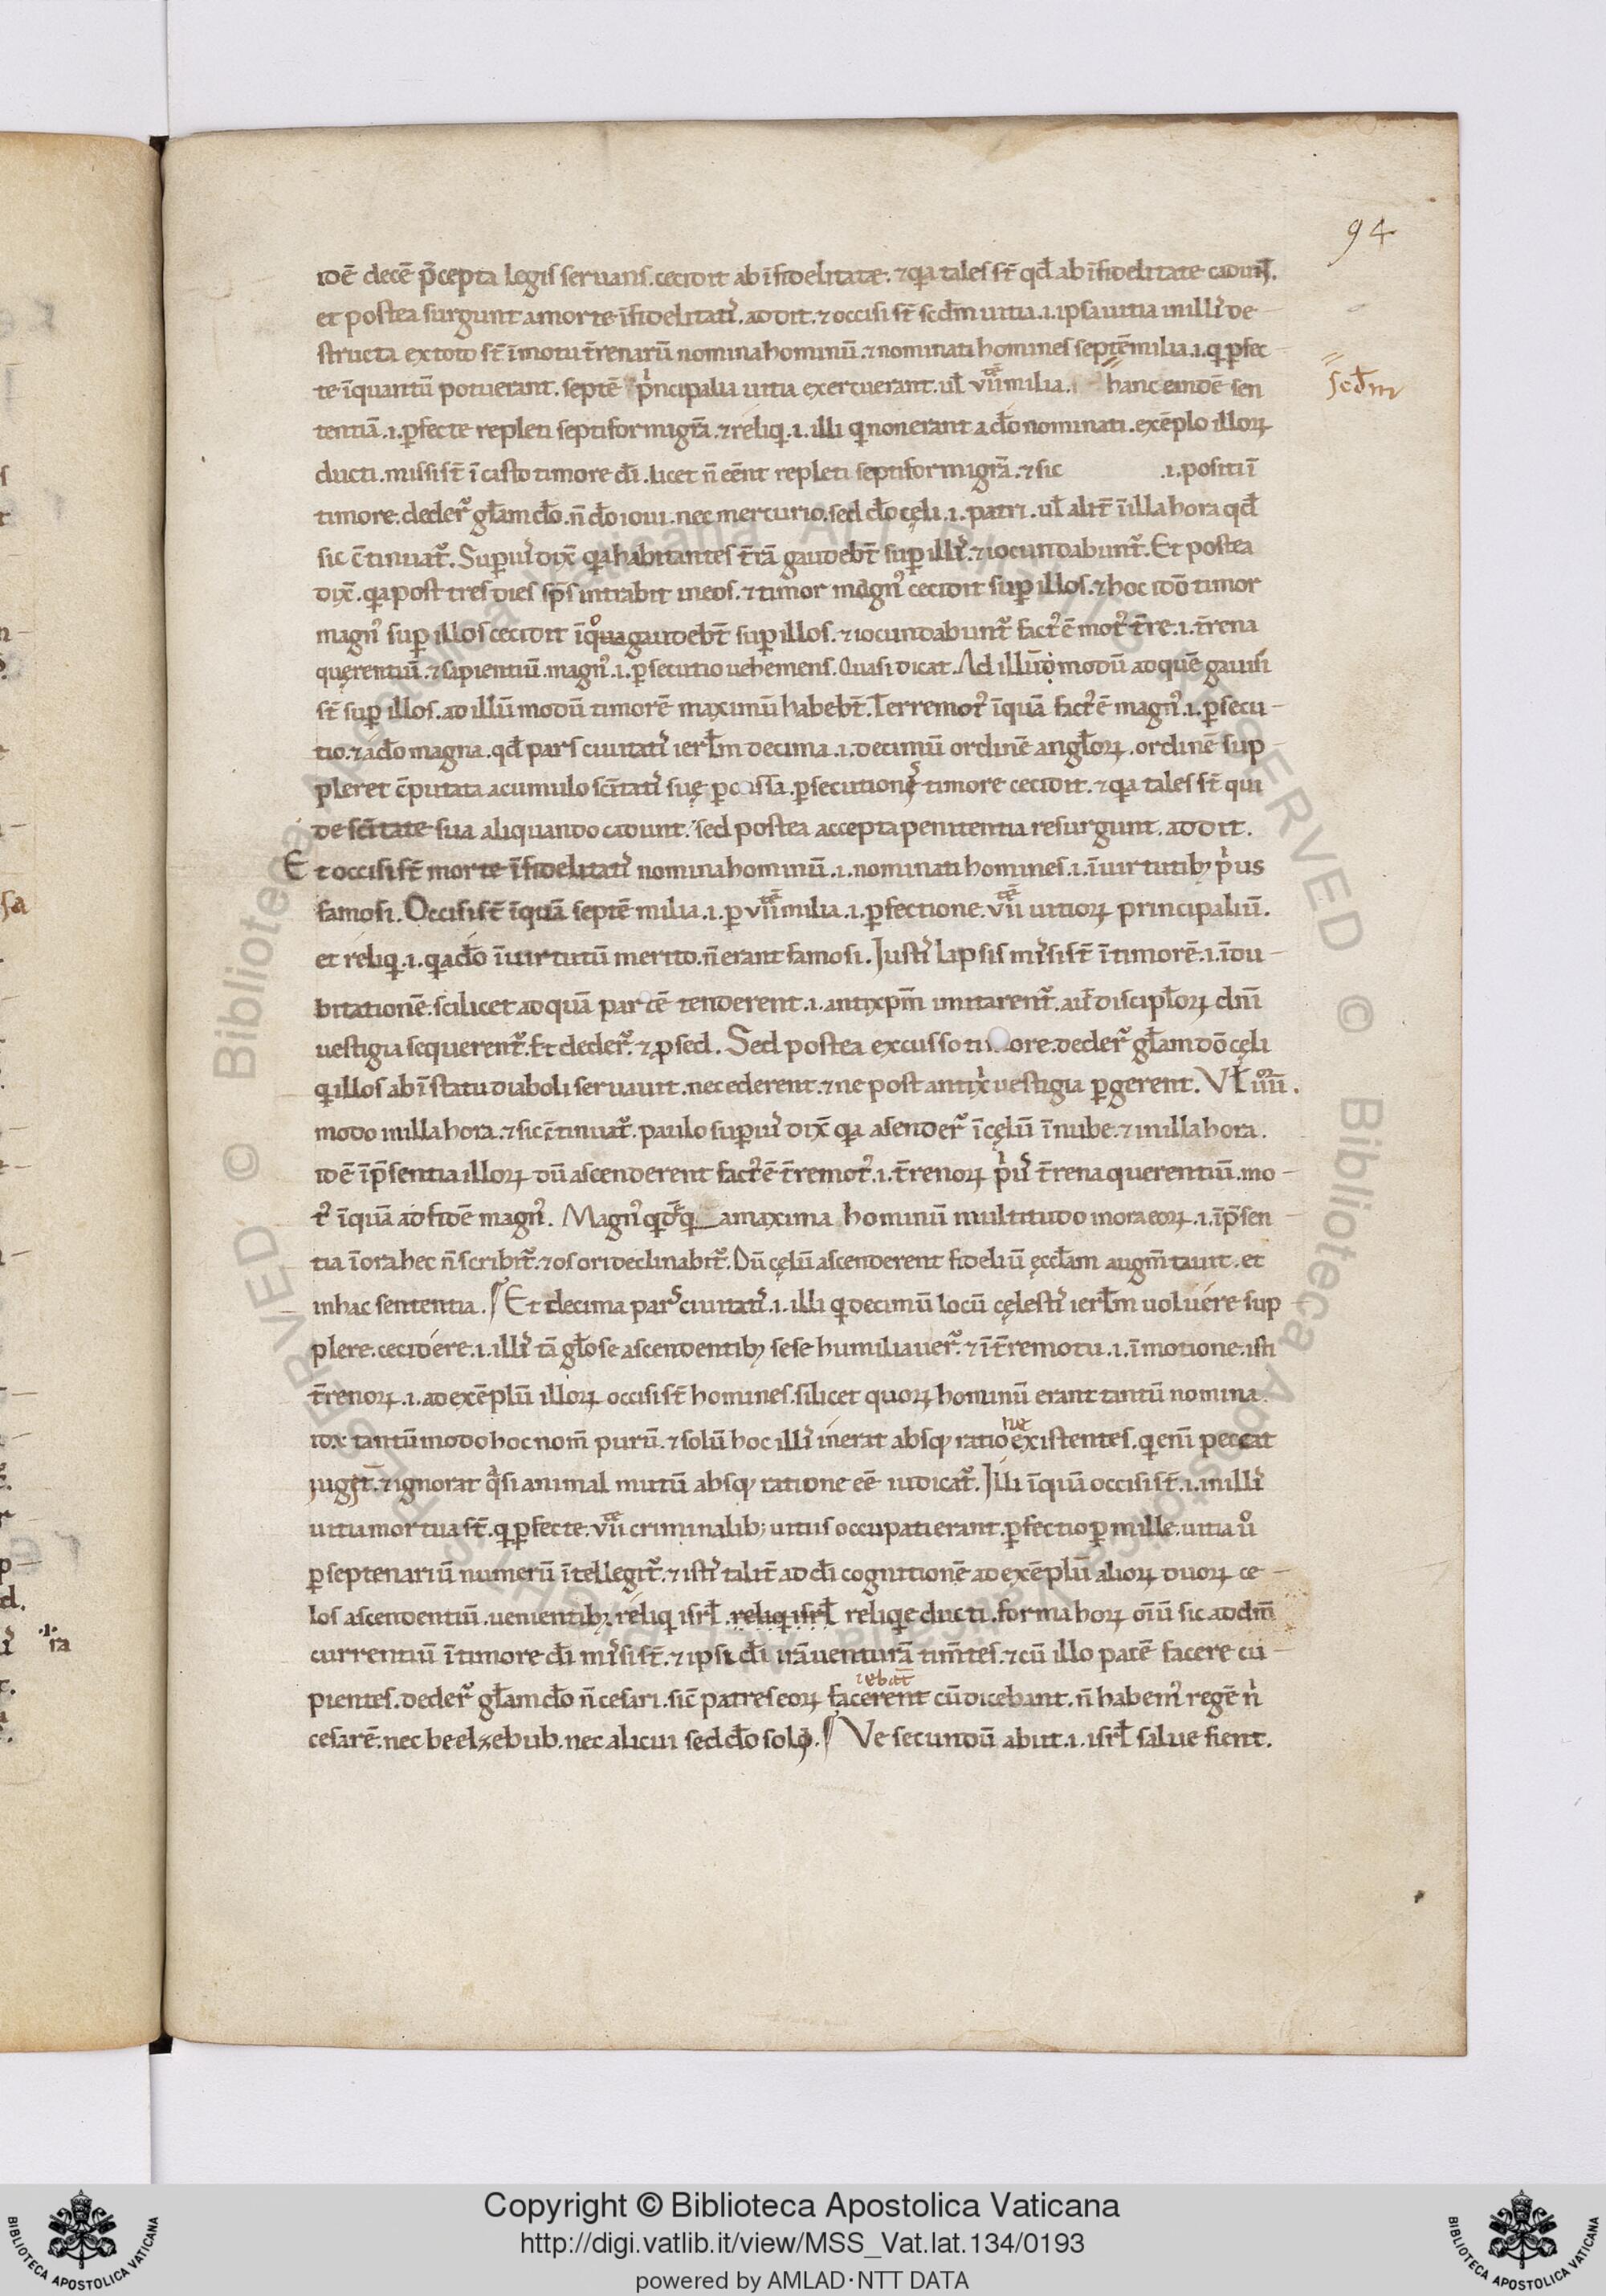 94
idē decē p̄cepta legis seruans. cecidit ab īfidelitate. ⁊ q̢a tales st̄ qđ ab īfidelitate cadunt.
et postea surgunt a morte īfidelitatis. addit. ⁊ occisi st̄ scđm uitia .i. ipsa uitia in illis de-
structa ex toto st̄ ī motu t̄renarū nomina hominū. ⁊ nominati homines septē milia .i. qͥ ꝑfec-
te īquantū potuerant. septē pͥncipalia uitia exercuerant. ul̄ vii milia. hanc eandē sen
scđm
tentiā .i. ꝑfecte repleti septiformi gr̄a. ⁊ reliqͥ .i. illi qͥ non erant a dō nominati. exēplo illoꝝ
ducti. missi st̄ ī casto timore dī. licet n̄ eēnt repleti septiformi gr̄a. ⁊ sic .i. positi ī
timore. dederͬ gl̄am dō. n̄ dō ioui. nec mercurio. sed dō cęli .i. patri. ul̄ alit̄ ī illa hora qđ
sic c̄tinuatͬ. Superius dix̄ q̢a habitantes t̄rā gaudebt̄ suꝑ illis. ⁊ iocundabuntͬ. Et postea
dix̄. q̢a post tres dies sp̄s intrabit in eos. ⁊ timor magnꝰ cecidit suꝑ illos. ⁊ hoc idō timor
magnꝰ suꝑ illos cecidit ī qͦ gaudebt̄ suꝑ illos. ⁊ iocundabuntͬ factꝰ ē motꝰ t̄re .i. t̄rena
querentiū. ⁊ sapientiū. magnꝰ .i. ꝑsecutio uehemens. Quasi dicat. Ad illū modū ad quē gauisi
st̄ suꝑ illos. ad illū modū timorē maximū habebt̄. Terremotꝰ īquā factꝰ ē magnꝰ .i. ꝑsecu-
tio. ⁊ adō magna. qđ pars ciuitatis ierl̄m decima .i. decimū ordinē angl̄oꝝ. ordinē sup
pleret c̄putata a cumulo sc̄itatis suę ꝑcussa. ꝑsecutionis timore cecidit. ⁊ q̢a tales st̄ qui
de sc̄itate sua aliquando cadunt. sed postea accepta penitentia resurgunt. addit.
Et occisi st̄ morte īfidelitatis nomina hominū .i. nominati homines .i. ī uirtutibꝫ pͥus
famosi. Occisi st̄ īquā septē milia .i. ꝑ vii milia .i. ꝑfectione vii uitioꝝ principaliū.
et reliqͥ .i. qͥ adō ī uirtutū merito. n̄ erant famosi. Iustis lapsis misi st̄ ī timorē .i. ī du-
bitationē. scilicet ad quā partē tenderent .i. antixp̄m imitarentͬ. aut discipl̄oꝝ dn̄i
uestigia sequerentͬ. Et dederͬ. ⁊ ꝓ sed. Sed postea excusso timore. dederͬ gl̄am dō cęli
qͥ illos ab ī statu diaboli seruauit. ne cederent. ⁊ ne post antixͥ uestigia ꝑgerent. Vl̄
modo in illa hora. ⁊ sic c̄tinuatͬ. paulo superius dix̄ q̢a asenderͬ ī cęlū ī nube. ⁊ in illa hora.
idē ī p̄sentia illoꝝ dū ascenderent factꝰ ē t̄remotꝰ .i. t̄renoꝝ pͥus t̄rena querentiū. mo-
tꝰ īquā ad fidē magnꝰ. Magnꝰ a maxima hominū multitudo in ora eoꝝ .i. ī p̄sen
tia ī ora hec n̄ scribitͬ. ⁊ os ori declinabitͬ. Dū cęlū ascenderent fideliū ęccl̄am augm̄tauit. et
in hac sententia. ¶ Et decima pars ciuitatis .i. illi qͥ decimū locū cęlestis ierl̄m uoluere sup
plere. cecidere .i. illis tā gl̄ose ascendentibꝫ sese humiliauerͬ. ⁊ ī t̄remotu .i. ī motione. isti
t̄renoꝝ .i. ad exēplū illoꝝ occisi st̄ homines. silicet quoꝝ hominū erant tantū nomina.
tantūmodo hoc nom̄ purū. ⁊ solū hoc illis inerat absqꝫ ratione existentes. qͥ enī peccat
iugit̄. ⁊ ignorat qͣsi animal mutū absqꝫ ratione eē iudicatͬ. Illi īquā occisi st̄ .i. in illis
uitia mortua st̄. qͥ ꝑfecte. vii criminalibꝫ uitiis occupati erant. ꝑfectio ꝑ mille. uitia uͦ
ꝑ septenariū numerū ītellegitͬ. ⁊ istis talit̄ ad dī cognitionē ad exēplū alioꝝ duoꝝ ce-
los ascendentiū. uenientibꝫ. reliqͥ isrl̄. reliqͥ isrl̄ reliqͥ educti. forma hoꝝ oīū sic ad dm̄
currentiū ī timore dī misi st̄. ⁊ ipsi dī irā uenturā tim̄tes. ⁊ cū illo pacē facere cu-
pientes. dederͬ gl̄am dō n̄ cesari. sic patres eoꝝ facerent cū dicebant. n̄ habemꝰ regē nͥ
cesarē. nec beelzebub. nec alicui sed dō solo. ¶ Ve secundū abiit .i. isrl̄ salue fient.
Copyright © Biblioteca Apostolica Vaticana
http://digi.vatlib.it/view/MSS_Vat.lat.134/0193
powered by AMLAD·NTT DATA